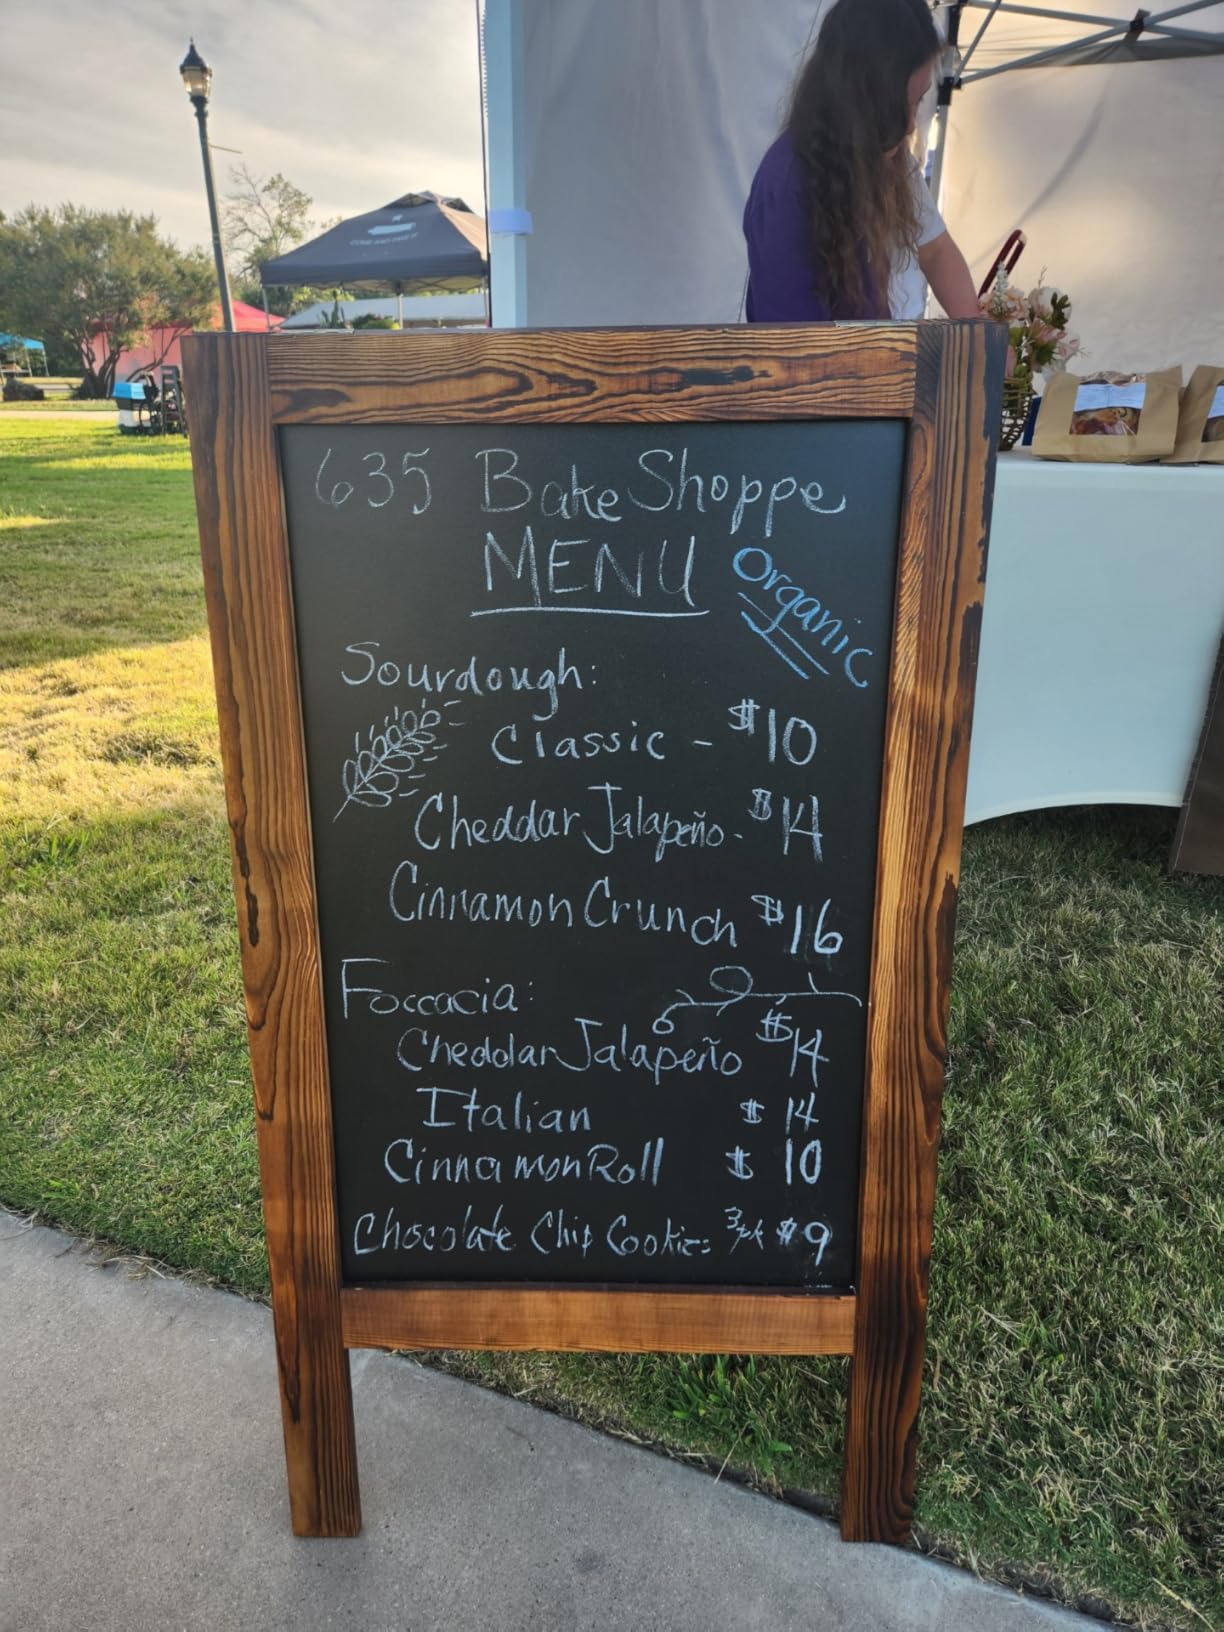 635 Bake Shoppe
MENU
Organic
Sourdough:
Classic - $10
Cheddar Jalapeño - $14
Cinnamon Crunch $16
Foccacia:
Cheddar Jalapeño $14
Italian $14
Cinnamon Roll $10
Chocolate Chip Cookies 3pk $9